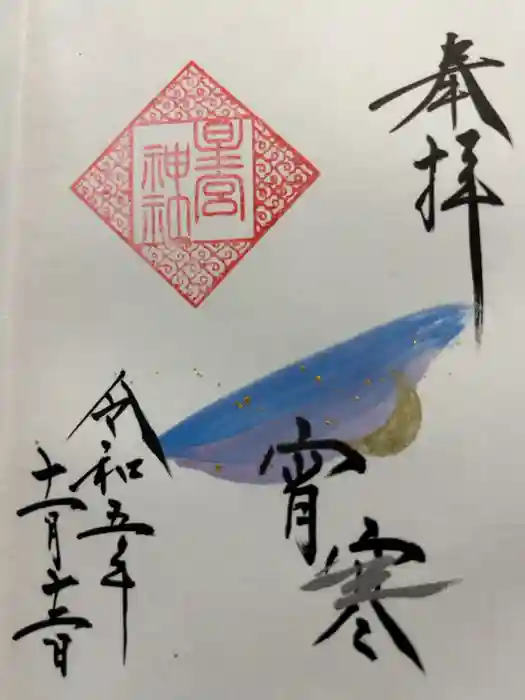 奉拝
星宮
神社
宵寒
令和五年
十一月十二日